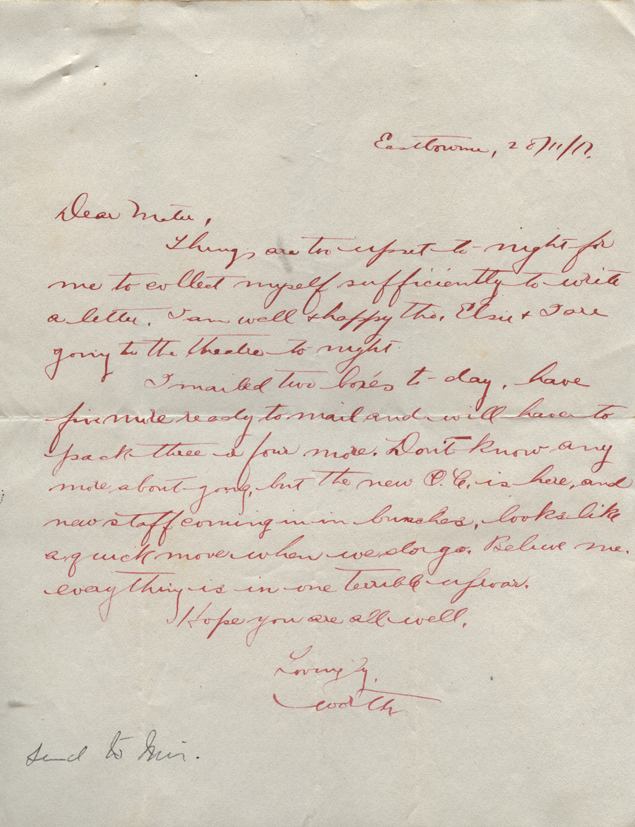 Eastbourne, 28/11/17.
Dear Mater,
Things are too upset to-night for
me to collect myself sufficiently to write
a letter. I am well & happy tho. Elsie & I are
going to the theatre to night.
I mailed two boxes to-day, have
five more ready to mail and will have to
pack three or four more. Don't know any
more about going, but the new O.C. is here, and
new staff coming in in bunches, looks like
a quick move when we do go. Believe me,
everything is in one terrible uproar.
Hope you are all well.
Lovingly,
Worth
Send to Mir.